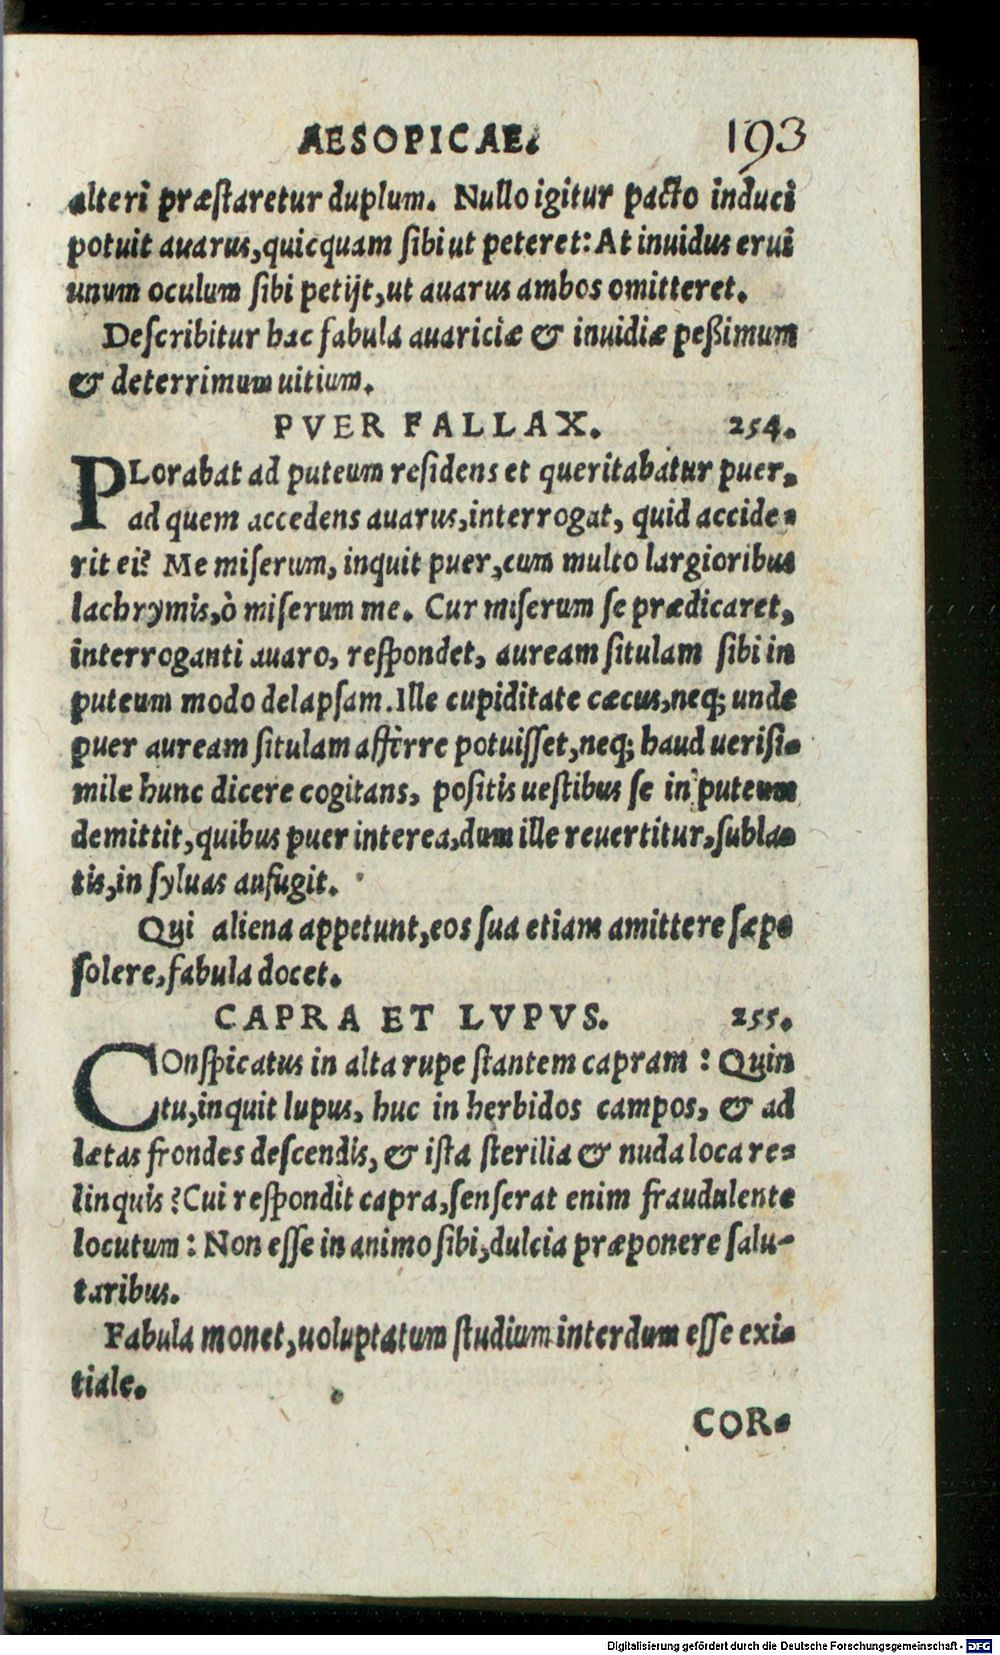 AESOPICAE. 193
alteri præſtaretur duplum. Nullo igitur pacto induci
potuit auarus, quicquam ſibi ut peteret: At inuidus erui
unum oculum ſibi petijt, ut auarus ambos omitteret.
Deſcribitur hac fabula auariciæ & inuidiæ peßimum
& deterrimum uitium.
PVER FALLAX. 254.
PLorabat ad puteum reſidens et queritabatur puer,
ad quem accedens auarus, interrogat, quid accide-
rit ei? Me miſerum, inquit puer, cum multo largioribus
lachrymis, ò miſerum me. Cur miſerum ſe prædicaret,
interroganti auaro, reſpondet, auream ſitulam ſibi in
puteum modo delapſam. Ille cupiditate cæcus, neq; unde
puer auream ſitulam afferre potuiſſet, neq; haud ueriſi-
mile hunc dicere cogitans, poſitis ueſtibus ſe in puteum
demittit, quibus puer interea, dum ille reuertitur, ſubla-
tis, in ſyluas aufugit.
Qui aliena appetunt, eos ſua etiam amittere ſæpe
ſolere, fabula docet.
CAPRA ET LVPVS. 255.
COnſpicatus in alta rupe ſtantem capram: Quin
tu, inquit lupus, huc in herbidos campos, & ad
lætas frondes deſcendis, & iſta ſterilia & nuda loca re-
linquis? Cui reſpondit capra, ſenſerat enim fraudulente
locutum: Non eſſe in animo ſibi, dulcia præponere ſalu-
taribus.
Fabula monet, uoluptatum ſtudium interdum eſſe exi-
tiale.
COR-
Digitalisierung gefördert durch die Deutsche Forschungsgemeinschaft - DFG